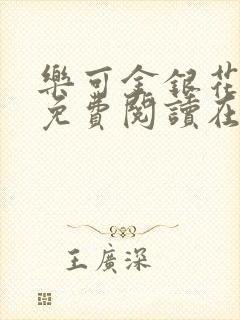 樂可金銀花
免費閱讀在
王廣深